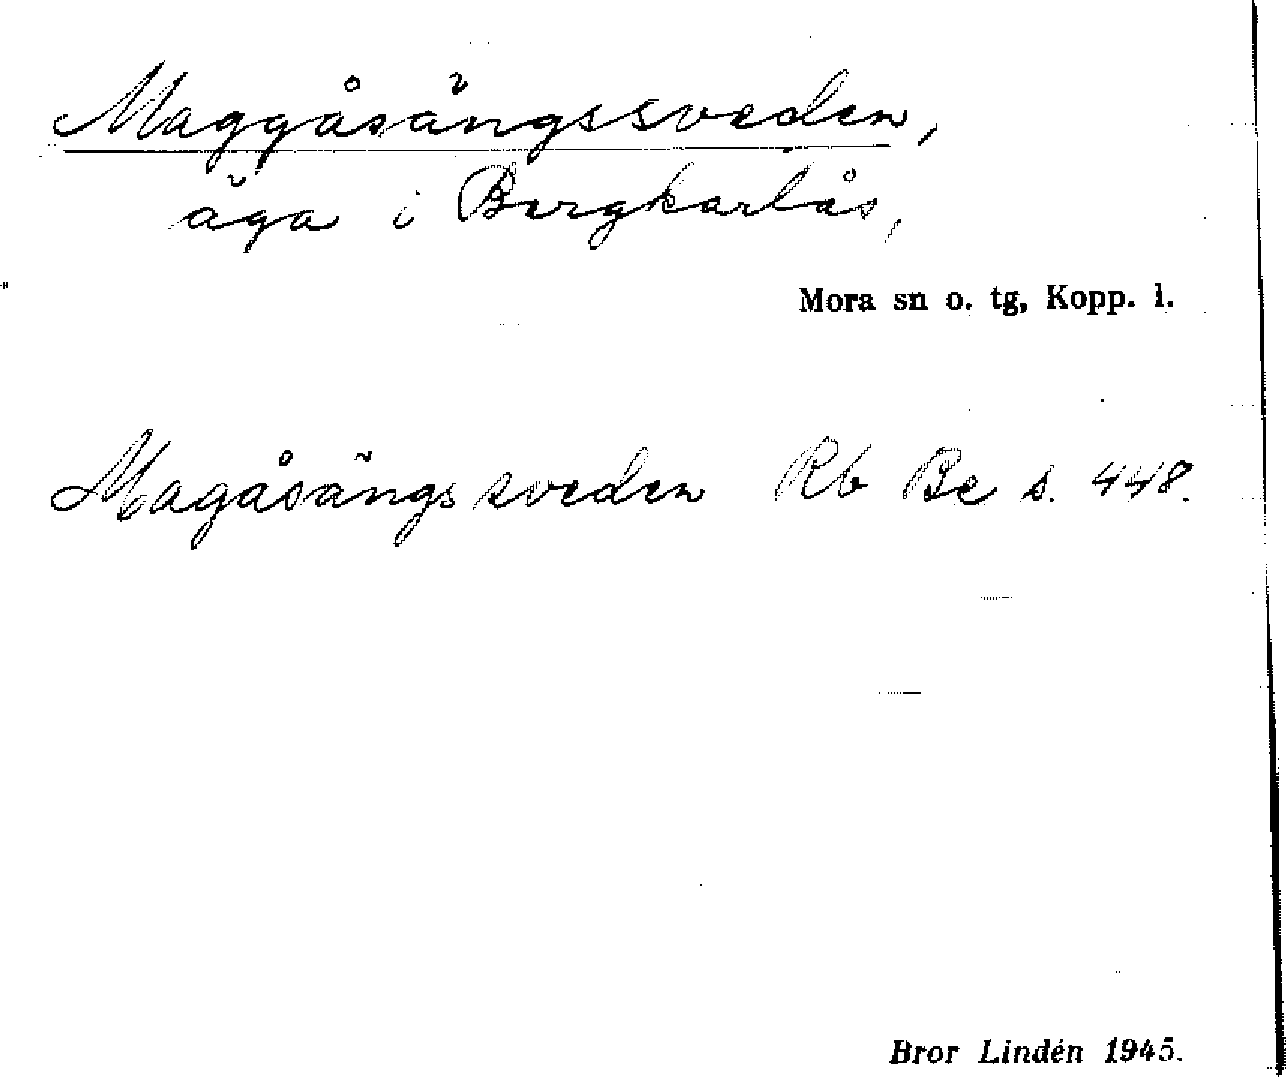 Maggåsängssveden,
äga i Bergkarlås,
Mora sn o. tg, Kopp. l.
Magåsängssveden Rb Be s. 448.
Bror Lindén 1945.